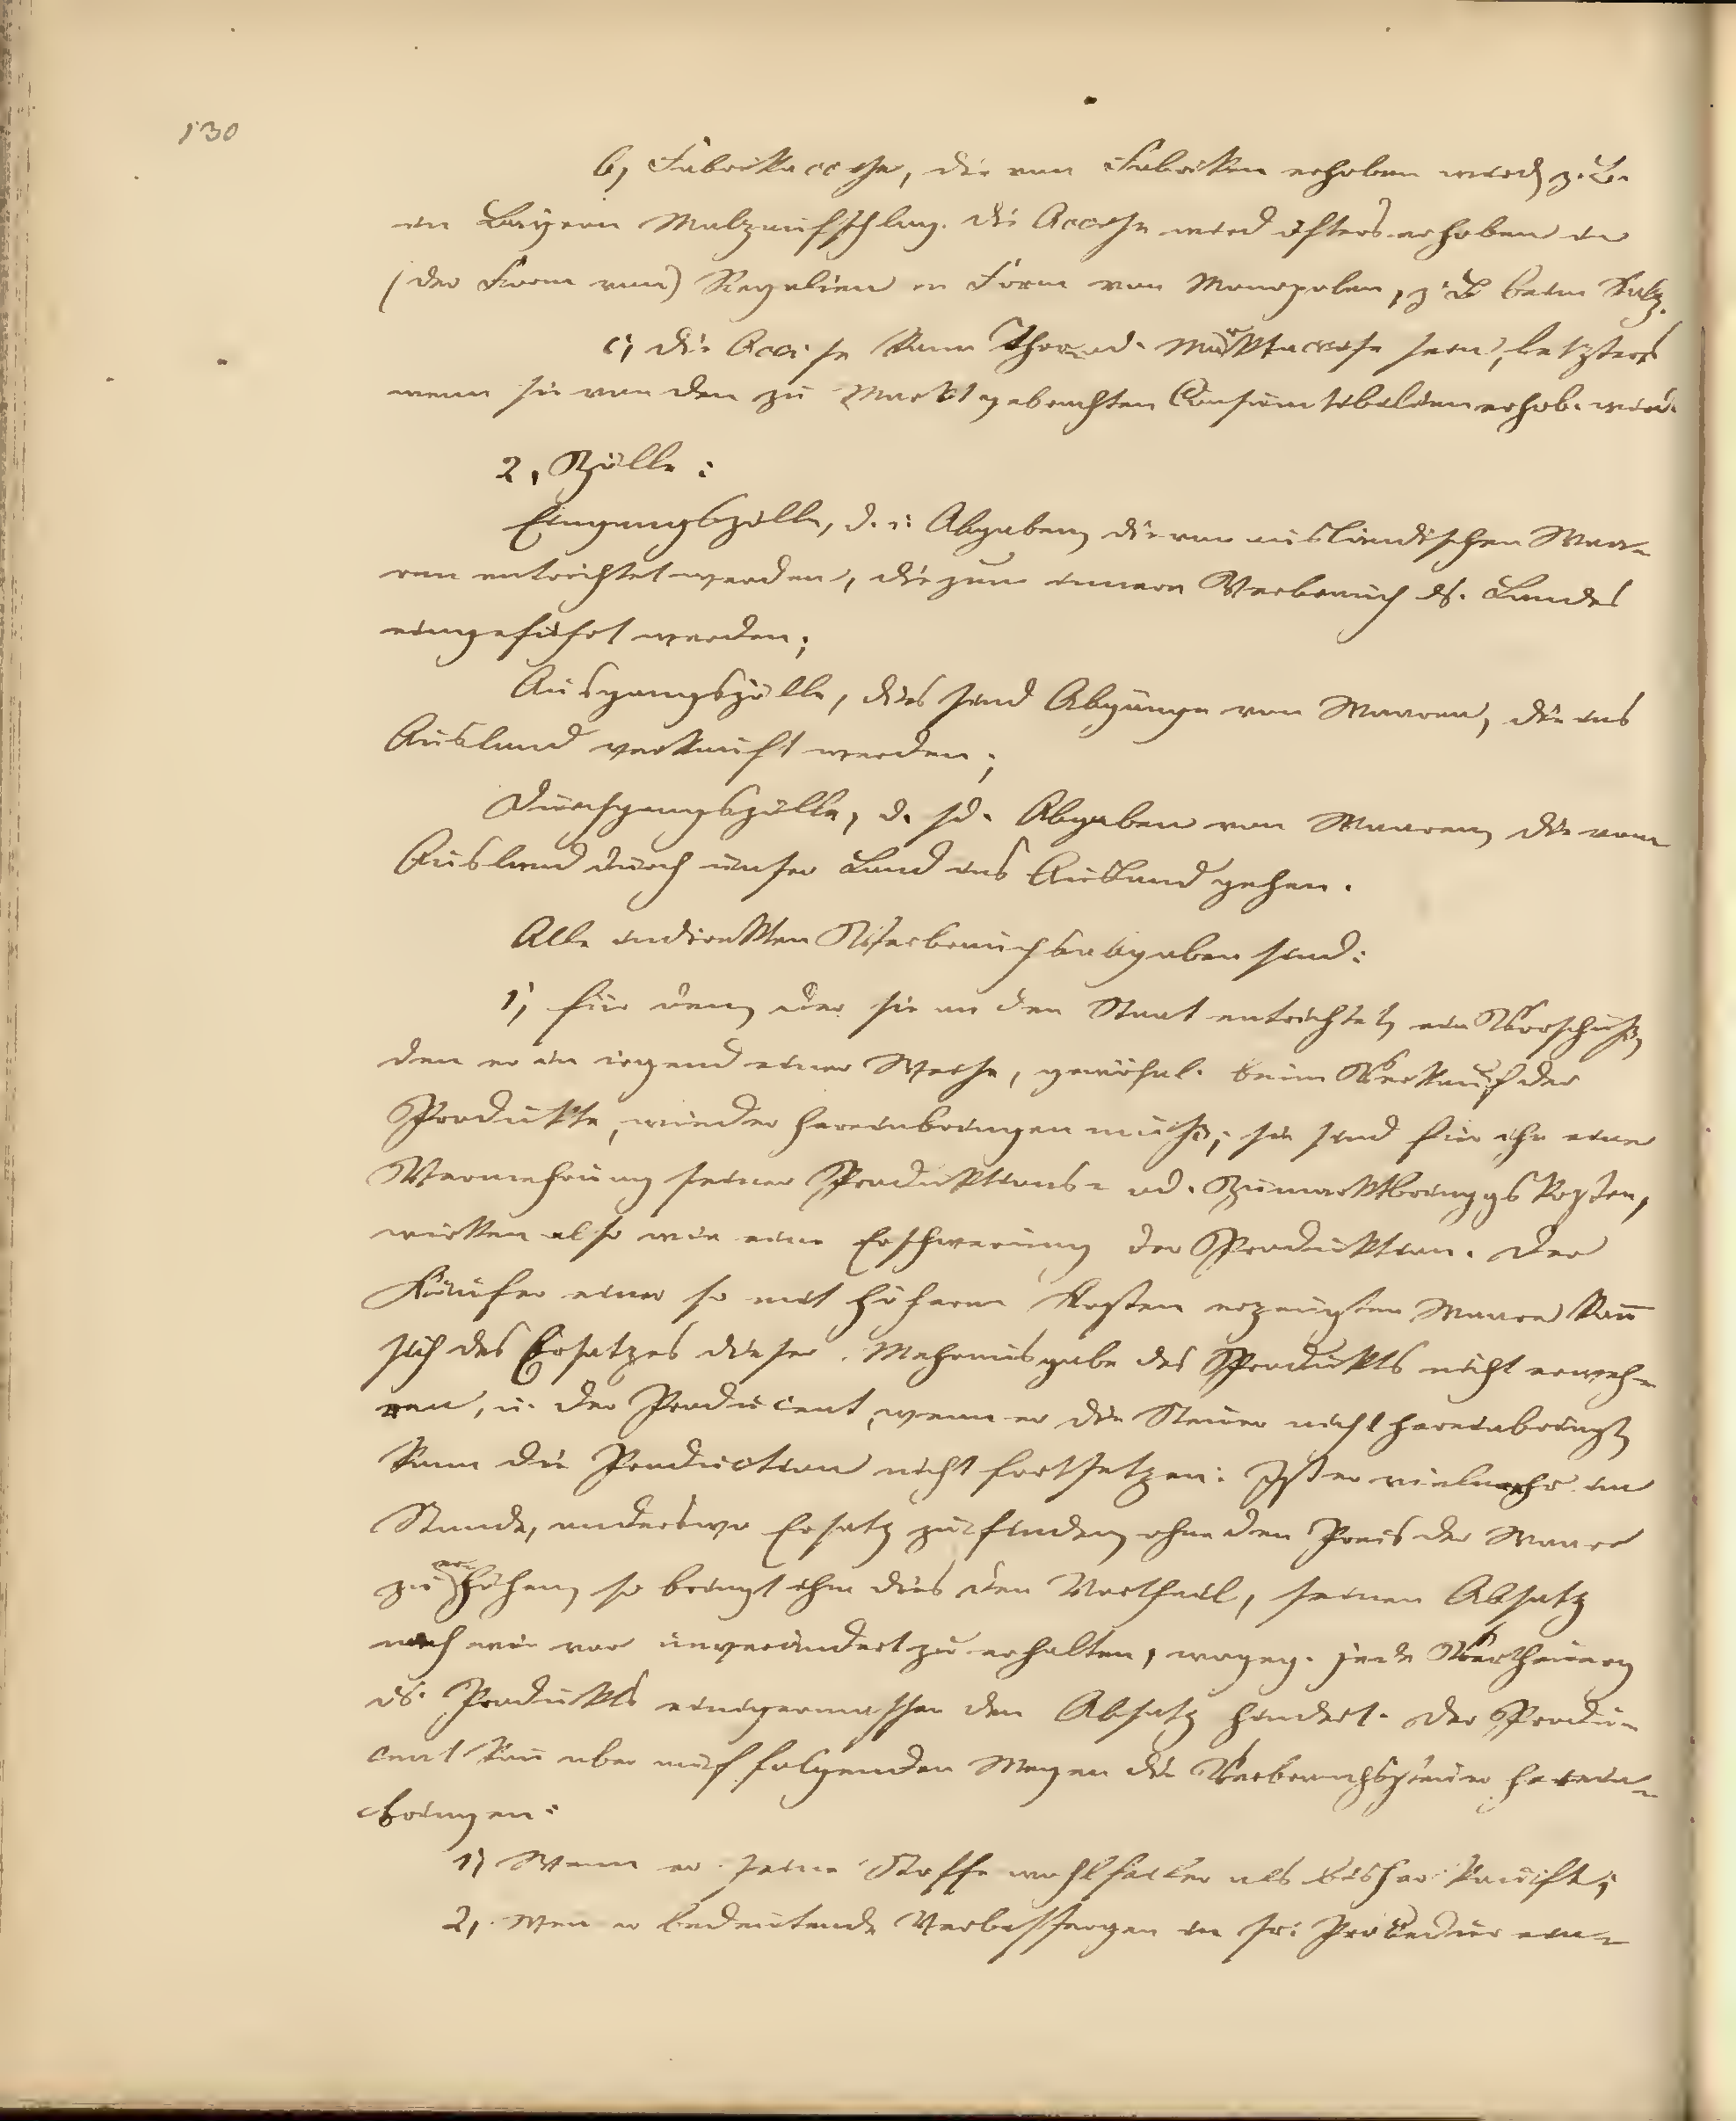 130
b, Fabrikaccise, die von Fabriken erhoben wird, z. B.
in Bayern Malzaufschlag. Die Accise wird öfters erhoben in
(der Form von) Regalien in Form von Monopolen, z. B. beim Salz.
c, die Accise kann Thor- od. Marktaccise sein, letzteres
wenn sie von den zu Markt gebrachten Consumtibilien erhob. wird.
2, Zölle:
Eingangszölle, d. i. Abgaben, die von ausländischen Waa-
ren entrichtet werden, die zum innern Verbrauch ds. Landes
eingeführt werden;
Ausgangszölle, dies sind Abgänge von Waaren, die ins
Ausland verkauft werden;
Durchgangszölle, d. sd. Abgaben von Waaren, die vom
Ausland durch unser Land ins Ausland gehen.
Alle indirekten Verbrauchsabgaben sind:
1, für den, der sie an den Staat entrichtet, ein Vorschuß,
den er in irgend einer Weise, gewöhnl. beim Verkauf der
Produkte, wieder hereinbringen muß; sie sind für ihn eine
Vermehrung seiner Produktions- od. Zumarktbringgskosten,
wirken also wie eine Erschwerung der Produktion. Der
Käufer einer so mit höheren Kosten erzeugten Waare kan̄
sich des Ersatzes dieser Mehrausgabe des Produkts nicht erweh-
ren, u. der Producent, wenn er die Steuer nicht hereinbringt,
kann die Production nicht fortsetzen. Ist er vielmehr im
Stande, anderswo Ersatz zu finden, ohne den Preis der Waare
zu erhöhen, so bringt ihm dies den Vortheil, seinen Absatz
nach wie vor unverändert zu erhalten, wogeg. jede Vertheuerg
ds. Produkts einigermassen den Absatz hindert. Der Produ-
cent kan̄ aber auf folgenden Wegen die Verbrauchssteuer herein-
bringen:
1, Wenn er seine Stoffe wohlfeiler als bisher kauft;
2, Wen er bedeutende Verbesserungen in sr. Prozedur ein-